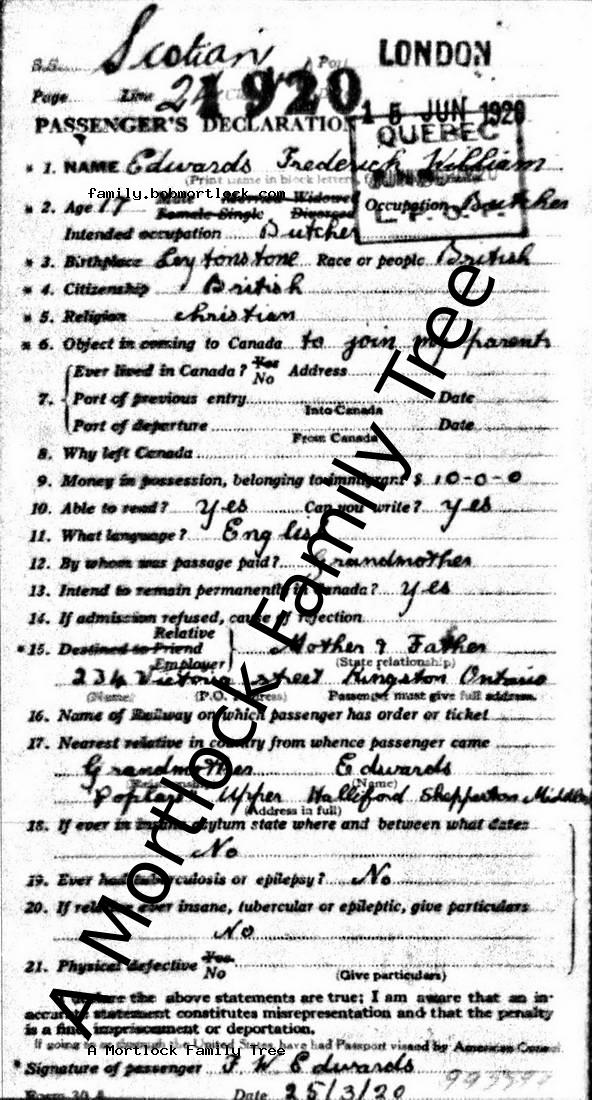 S.S. Scotian Port LONDON
Page Line 24 1920
15 JUN 1920
PASSENGER'S DECLARATION QUEBEC
* 1. NAME Edwards Frederick William
(Print name in block letters
family.bobmortlock.com
* 2. Age 17 Male Married Widowed Occupation Butcher
Female Single Divorced
Intended occupation Butcher
* 3. Birthplace Leytonstone Race or people British
* 4. Citizenship British
* 5. Religion christian
* 6. Object in coming to Canada to join my parents
7. Ever lived in Canada? Yes No Address
Port of previous entry Date
Into Canada
Port of departure Date
From Canada
8. Why left Canada
9. Money in possession, belonging to immigrant $ 10-0-0
10. Able to read? Yes Can you write? Yes
11. What language? English
12. By whom was passage paid? Grandmother
13. Intend to remain permanently in Canada? Yes
14. If admission refused, cause of rejection
* 15. Destined to Relative Friend Employer Mother & Father
(State relationship)
234 Victoria street Kingston Ontario
(Name) (P.O. Address) Passenger must give full address.
16. Name of Railway on which passenger has order or ticket
17. Nearest relative in country from whence passenger came
Grandmother Edwards
(Relationship) (Name)
Upper Halliford Shepperton
(Address in full)
18. If ever in insane asylum state where and between what dates
No
19. Ever had tuberculosis or epilepsy? No
20. If relative ever insane, tubercular or epileptic, give particulars
No
21. Physical defective Yes No
(Give particulars)
I declare the above statements are true; I am aware that an in-
accurate statement constitutes misrepresentation and that the penalty
is a fine, imprisonment or deportation.
If going to or through the United States, have had Passport visaed by American Consul
A Mortlock Family Tree
* Signature of passenger F. W. Edwards
Form 30 A Date 25/3/20
A Mortlock Family Tree